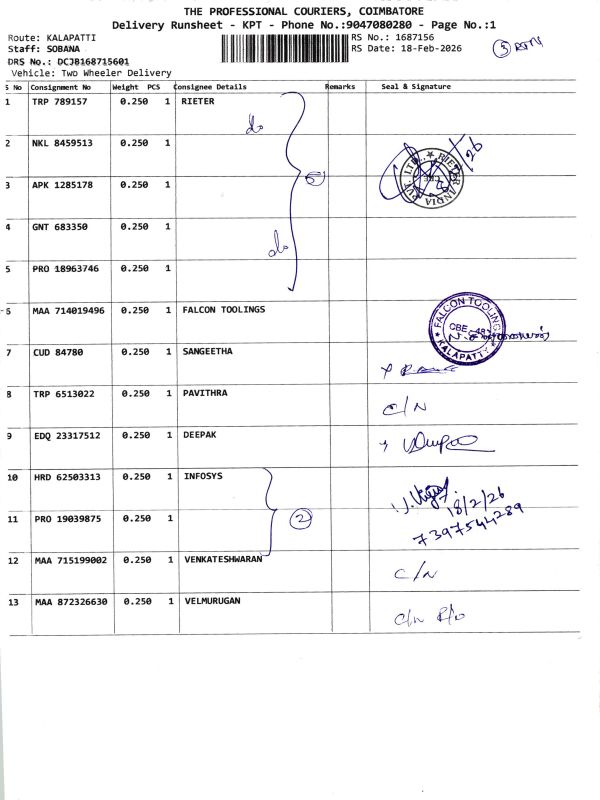 THE PROFESSIONAL COURIERS, COIMBATORE
Delivery Runsheet - KPT - Phone No.:9047080280 - Page No.:1
Route: KALAPATTI
Staff: SOBANA
DRS No.: DCJB168715601
Vehicle: Two Wheeler Delivery
RS No.: 1687156
RS Date: 18-Feb-2026
S No Consignment No Weight PCS Consignee Details Remarks Seal & Signature
1 TRP 789157 0.250 1 RIETER
do
2 NKL 8459513 0.250 1
3 APK 1285178 0.250 1
5
RIETER INDIA PVT. LTD.
4 GNT 683350 0.250 1
do
5 PRO 18963746 0.250 1
6 MAA 714019496 0.250 1 FALCON TOOLINGS
FALCON TOOLING
CBE - 48
KALAPATTY
7 CUD 84780 0.250 1 SANGEETHA
8 TRP 6513022 0.250 1 PAVITHRA
C/N
9 EDQ 23317512 0.250 1 DEEPAK
10 HRD 62503313 0.250 1 INFOSYS
18/2/26
11 PRO 19039875 0.250 1
2
7397544289
12 MAA 715199002 0.250 1 VENKATESHWARAN
C/N
13 MAA 872326630 0.250 1 VELMURUGAN
C/N R/O